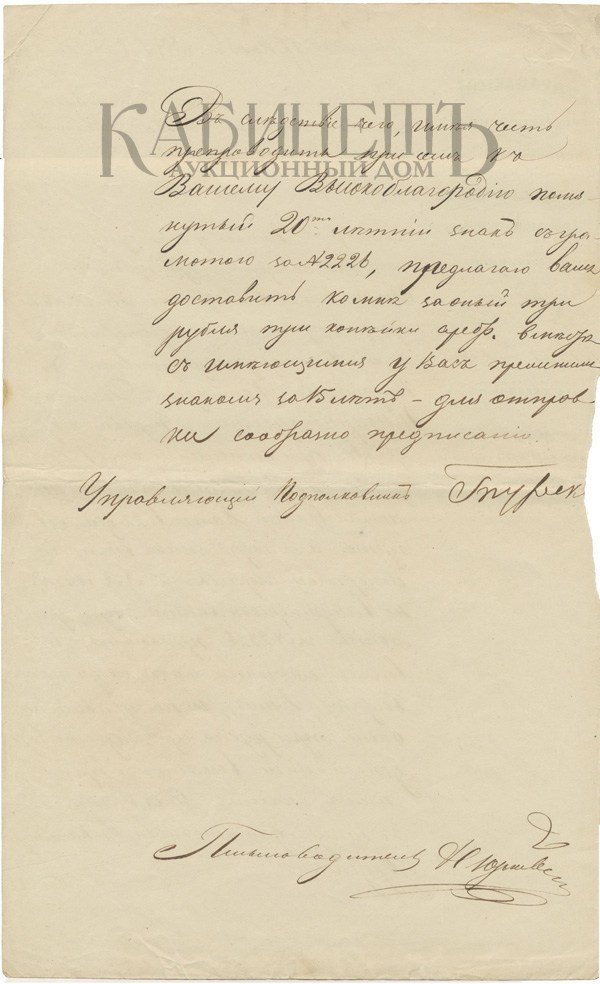 КАБИНЕТЪ
АУКЦИОННЫЙ ДОМ
Въ слѣдствіе чего, имѣя честь
препроводить при семъ къ
Вашему Высокоблагородію помя-
нутый 20ти лѣтній знакъ съ гра-
мотою за № 2226, предлагаю вамъ
доставить ко мнѣ за оный три
рубля три копѣйки сереб. вмѣстѣ
съ имѣющимся у Васъ прежнимъ
знакомъ за 15 лѣтъ – для отправ
ки сообразно предписанію.
Управляющій Подполковникъ
Письмоводитель